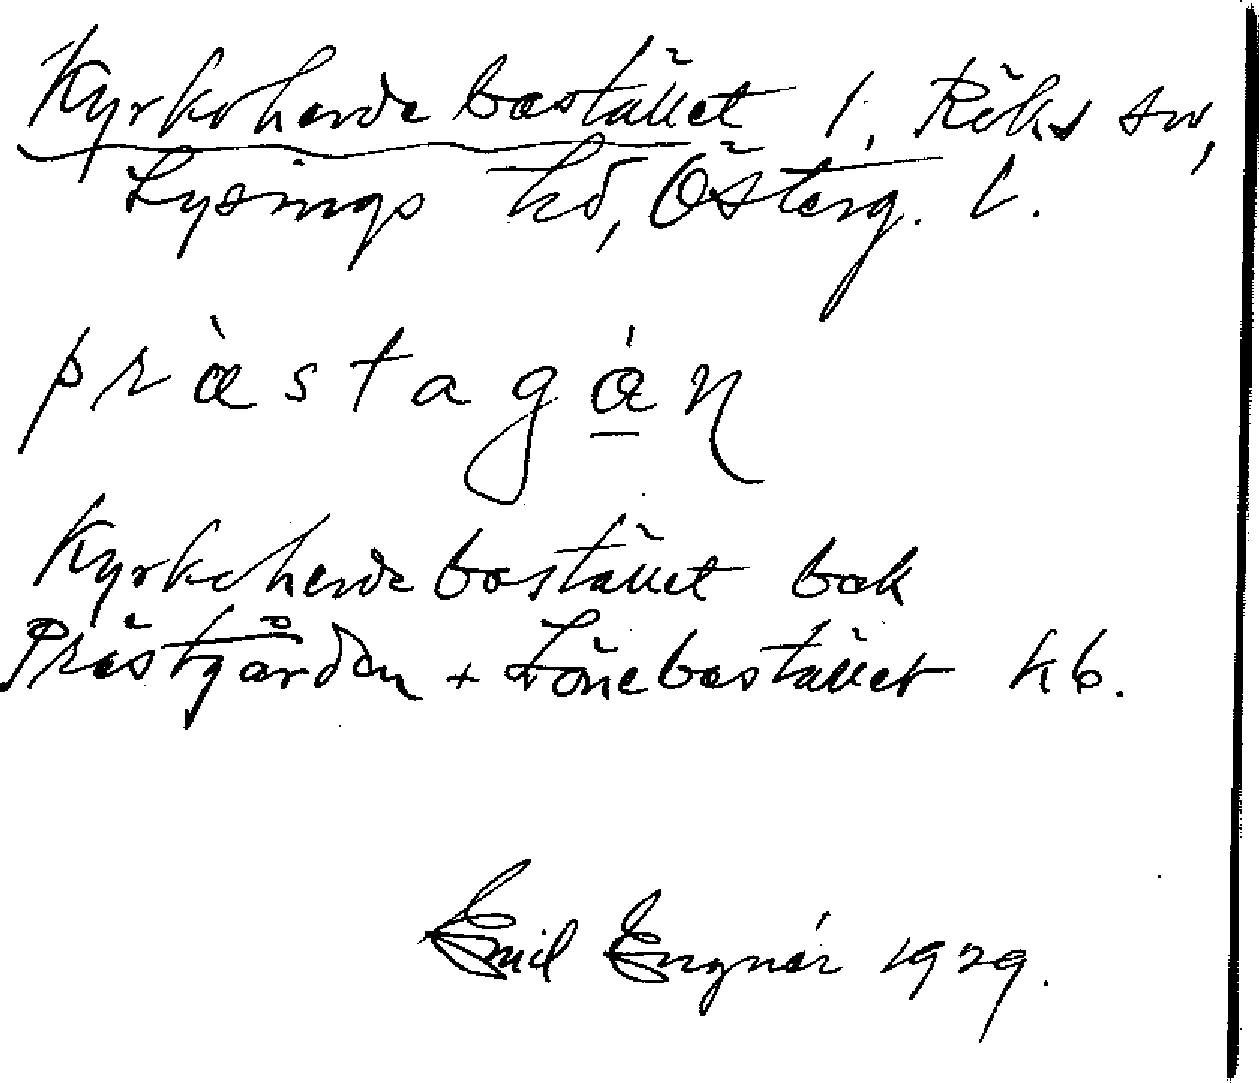 Kyrkoherdebostället 1, Röks sn,
Lysings hd, Österg. l.
prà̀stagán
Kyrkoherdebostället bok
Prästgården + Lönebostället kb.
Emil Engnér 1929.